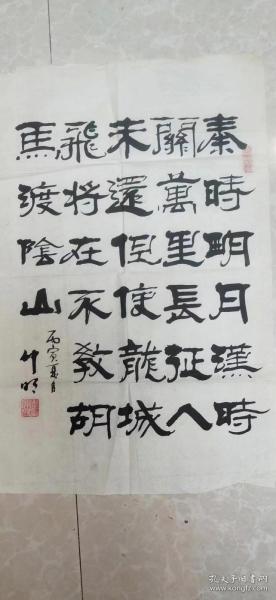 秦時明月漢時
關萬里長征人
未還但使龍城
飛將在不教胡
馬渡陰山
丙寅夏月
竹明
孔夫子旧书网